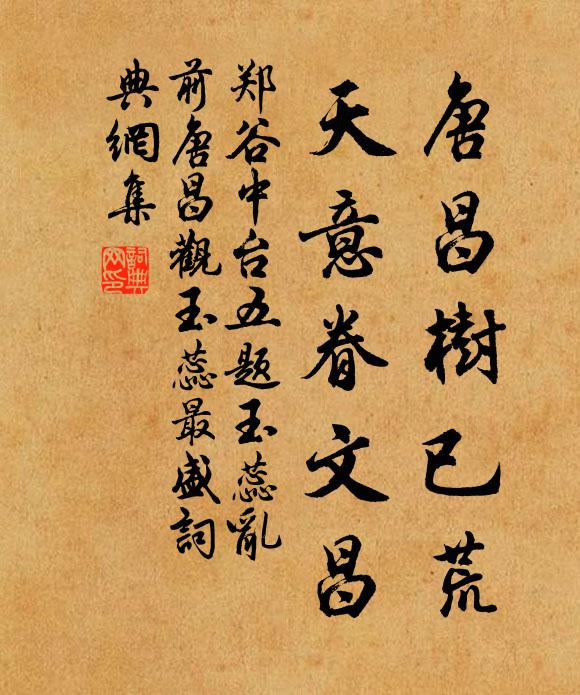 唐昌樹已荒
天意眷文昌
郑谷中台五题玉蕊亂
前唐昌觀玉蕊最盛詞
典網集
詞典網印